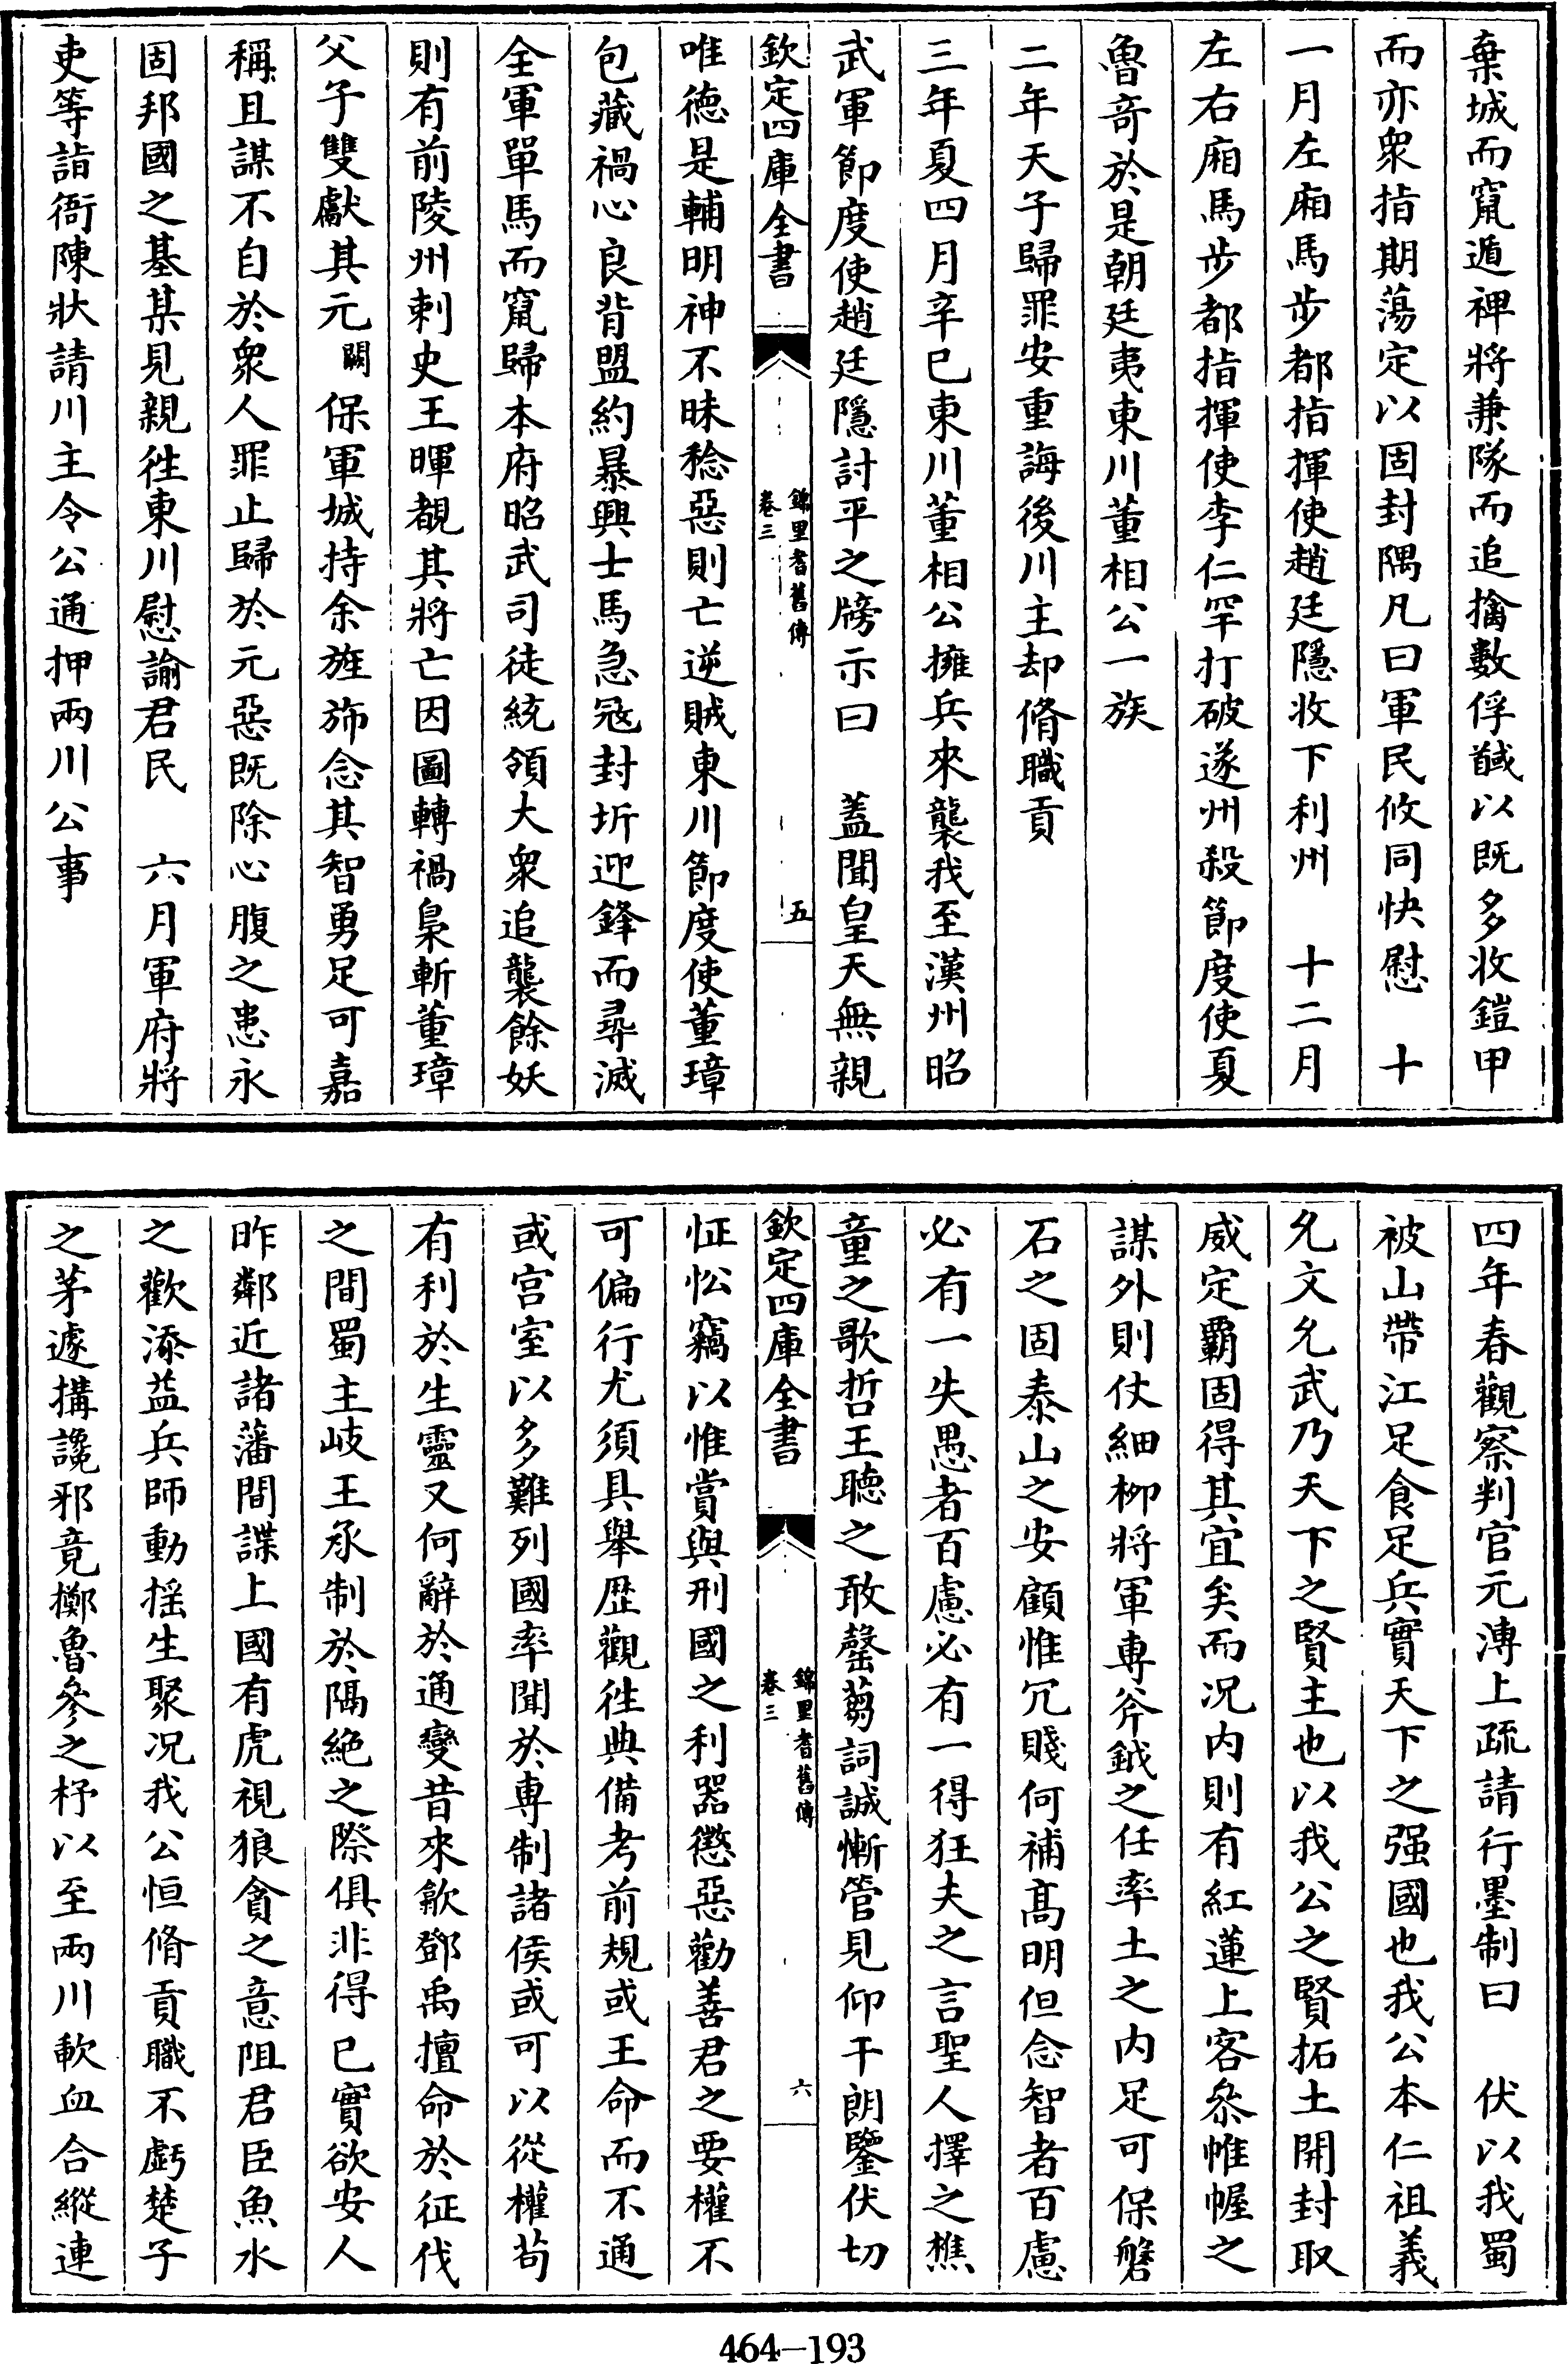 棄城而竄遁裨將兼隊而追擒數俘馘以既多收鎧甲
而亦衆指期蕩定以固封隅凡曰軍民攸同快慰　十
一月左廂馬步都指揮使趙廷隱收下利州　十二月
左右廂馬步都指揮使李仁罕打破遂州殺節度使夏
魯竒於是朝廷夷東川董相公一族
二年天子歸罪安重誨後川主却脩職貢
三年夏四月辛巳東川董相公擁兵來襲我至漢州昭
武軍節度使趙廷隱討平之牓示曰　蓋聞皇天無親
欽定四庫全書
錦里耆舊傳
卷三
五
唯德是輔明神不昧稔惡則亡逆賊東川節度使董璋
包藏禍心良背盟約暴興士馬急冦封圻迎鋒而尋滅
全軍單馬而竄歸本府昭武司徒統領大衆追襲餘妖
則有前陵州刺史王暉覩其將亡因圖轉禍梟斬董璋
父子雙獻其元闕保軍城持余旌斾念其智勇足可嘉
稱且謀不自於衆人罪止歸於元惡既除心腹之患永
固邦國之基某見親徃東川慰諭君民　六月軍府將
吏等詣衙陳狀請川主令公通押兩川公事
四年春觀察判官元溥上疏請行墨制曰　伏以我蜀
被山帶江足食足兵實天下之强國也我公本仁祖義
允文允武乃天下之賢主也以我公之賢拓土開封取
威定霸固得其宜矣而况内則有紅蓮上客叅帷幄之
謀外則仗細栁將軍専斧鉞之任率土之内足可保磐
石之固泰山之安顧惟冗賤何補髙明但念智者百慮
必有一失愚者百慮必有一得狂夫之言聖人擇之樵
童之歌哲王聴之敢罄蒭詞誠慚管見仰干朗鑒伏切
欽定四庫全書
錦里耆舊傳
卷三
六
怔忪竊以惟賞與刑國之利器懲惡勸善君之要權不
可偏行尤須具舉歴觀徃典備考前規或王命而不通
或宫室以多難列國率聞於専制諸侯或可以從權茍
有利於生靈又何辭於通變昔來歙鄧禹擅命於征伐
之間蜀主岐王承制於隔絶之際俱非得已實欲安人
昨鄰近諸藩間諜上國有虎視狼貪之意阻君臣魚水
之歡添益兵師動揺生聚况我公恒脩貢職不虧楚子
之茅遽搆讒邪竟擲魯參之杼以至兩川軟血合縱連
464-193